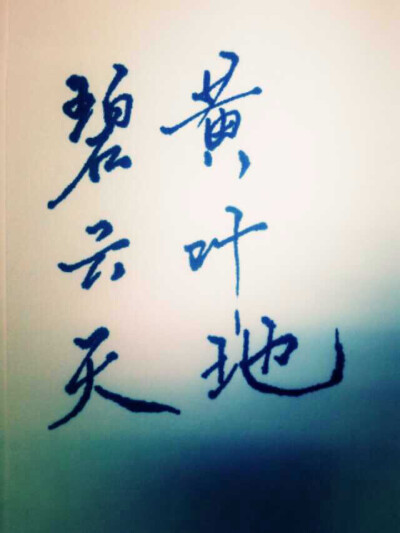 碧云天
黄叶地